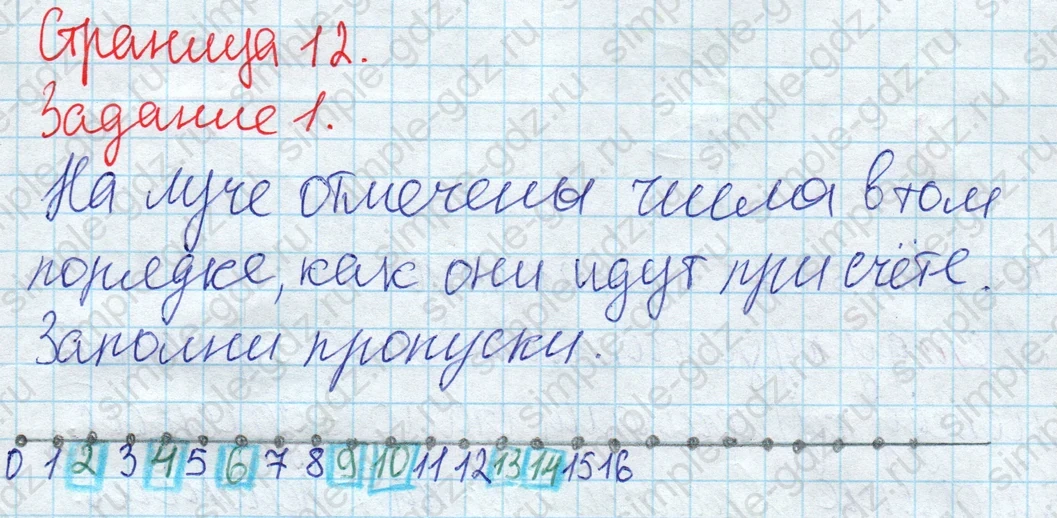 Страница 12.
Задание 1.
На луче отмечены числа в том
порядке, как они идут при счёте.
Заполни пропуски.
0 1 2 3 4 5 6 7 8 9 10 11 12 13 14 15 16
simple-gdz.ru